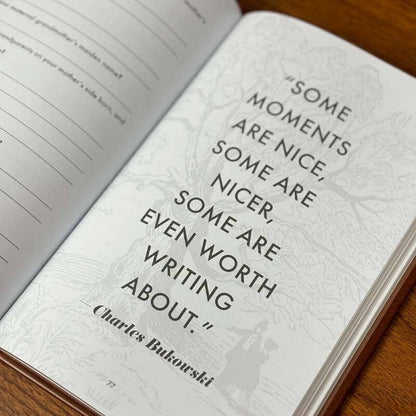 mother's
ur maternal grandmother's maiden name?
ndparents on your mother's side born, and
"SOME
MOMENTS
ARE NICE,
SOME ARE
NICER,
SOME ARE
EVEN WORTH
WRITING
ABOUT."
Charles Bukowski
77